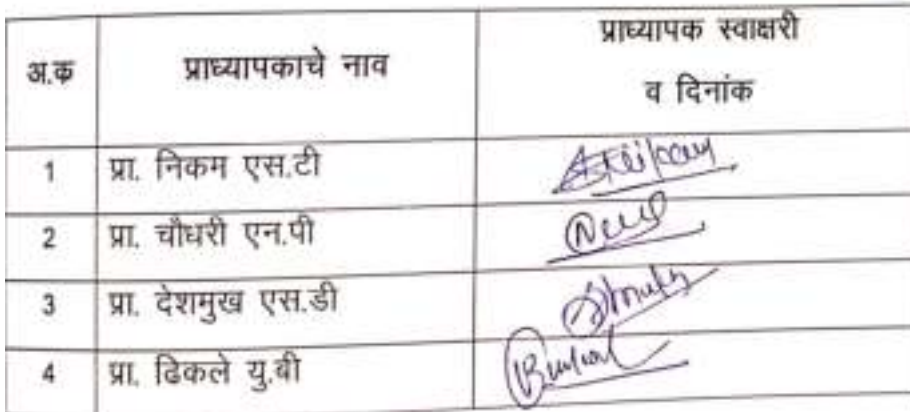 अ.क्र प्राध्यापकाचे नाव प्राध्यापक स्वाक्षरी
व दिनांक
1 प्रा. निकम एस.टी
2 प्रा. चौधरी एन.पी
3 प्रा. देशमुख एस.डी
4 प्रा. ढिकले यु.बी